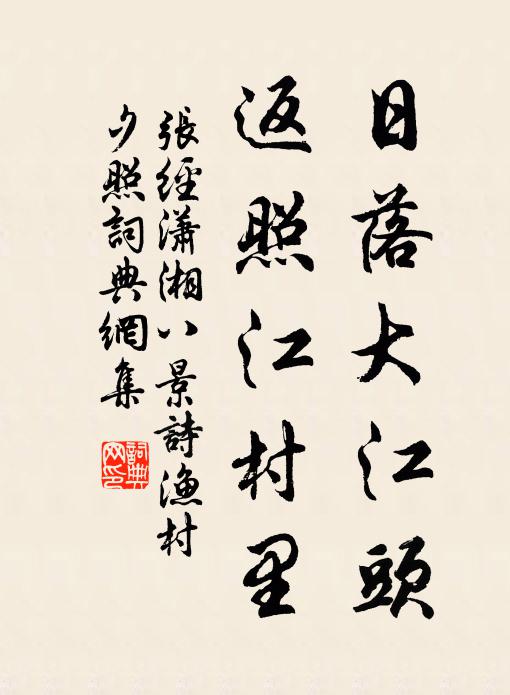 日落大江頭
返照江村里
張經瀟湘八景詩漁村
夕照詞典網集
詞典網印